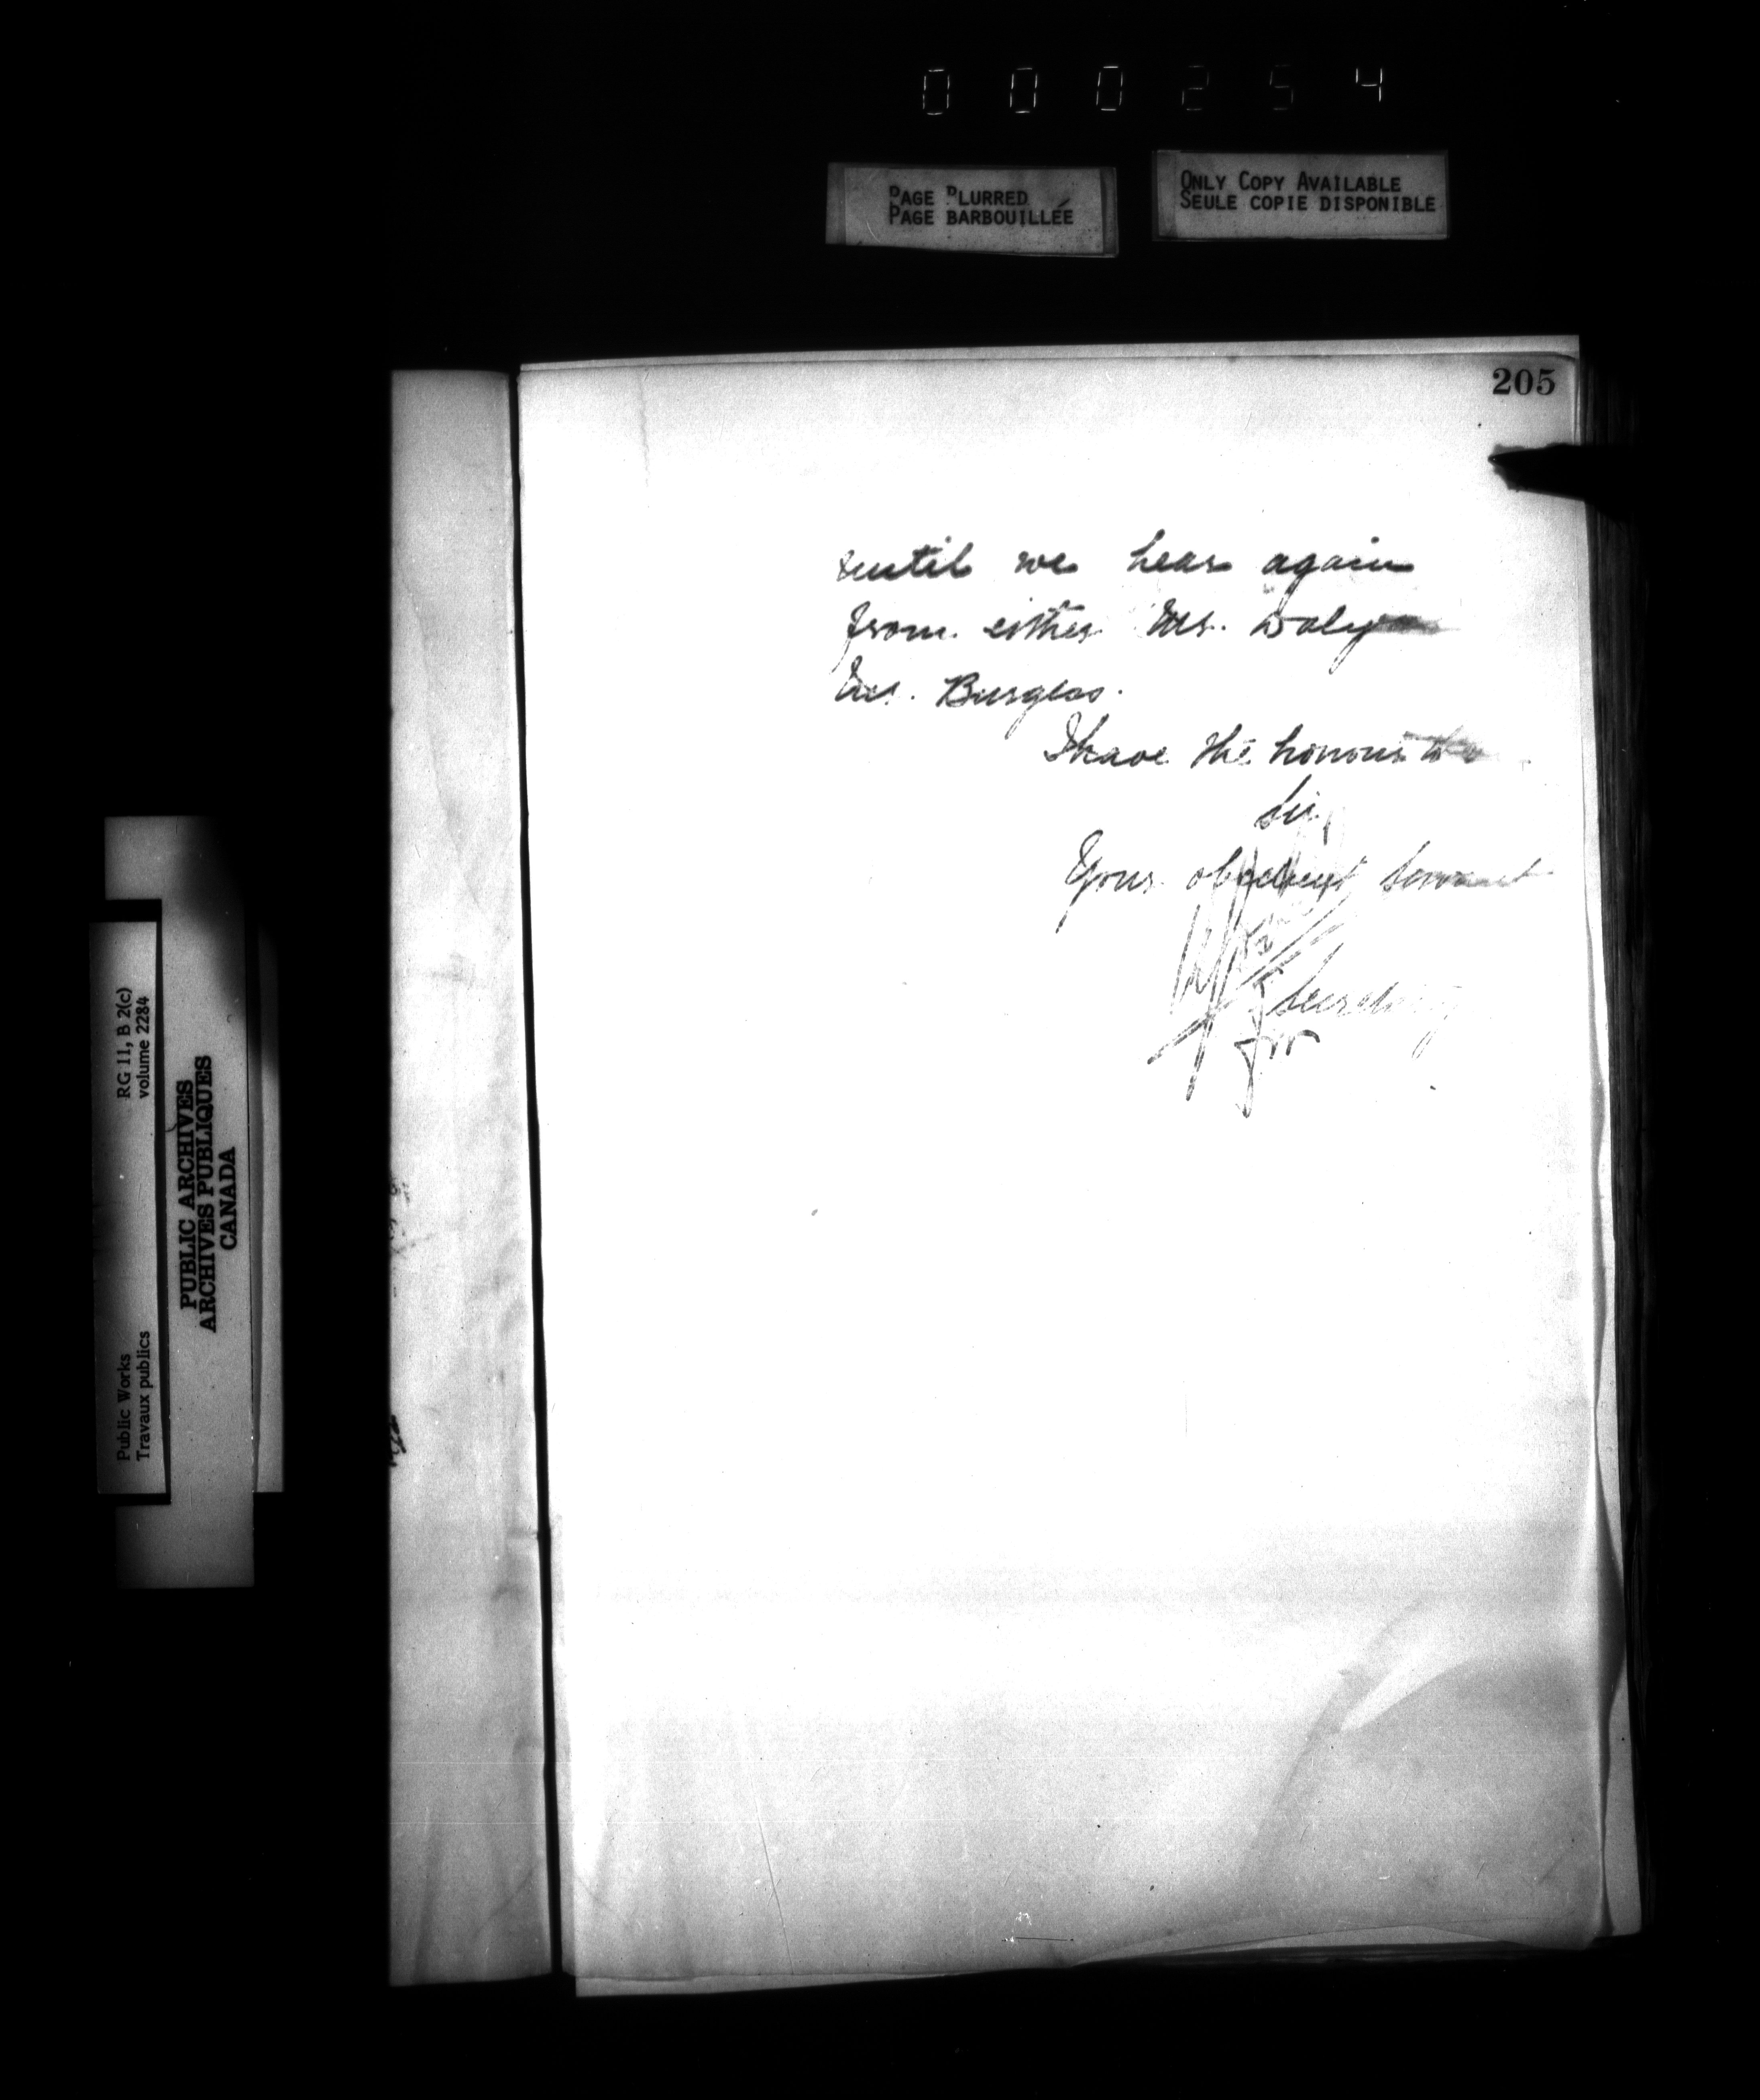 000254
PAGE BLURRED
PAGE BARBOUILLÉE
ONLY COPY AVAILABLE
SEULE COPIE DISPONIBLE
205
until we hear again
from either Mr. Daly
Mr. Burgess.
I have the honour to
Sir,
Your obedient Servant
Secretary
RG 11, B 2(c)
volume 2284
Public Works
Travaux publics
PUBLIC ARCHIVES
ARCHIVES PUBLIQUES
CANADA